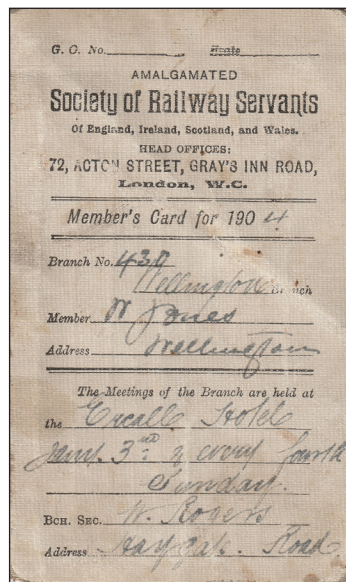 G. C. No. State
AMALGAMATED
Society of Railway Servants
Of England, Ireland, Scotland, and Wales.
HEAD OFFICES:
72, ACTON STREET, GRAY'S INN ROAD,
London, W.C.
Member's Card for 1904
Branch No. 439
Wellington Branch
Member W Jones
Address Wellington
The Meetings of the Branch are held at
the Ercall Hotel
Jany. 3rd & every fourth
Sunday.
BCH. SEC. W. Rogers
Address Haygate. Road